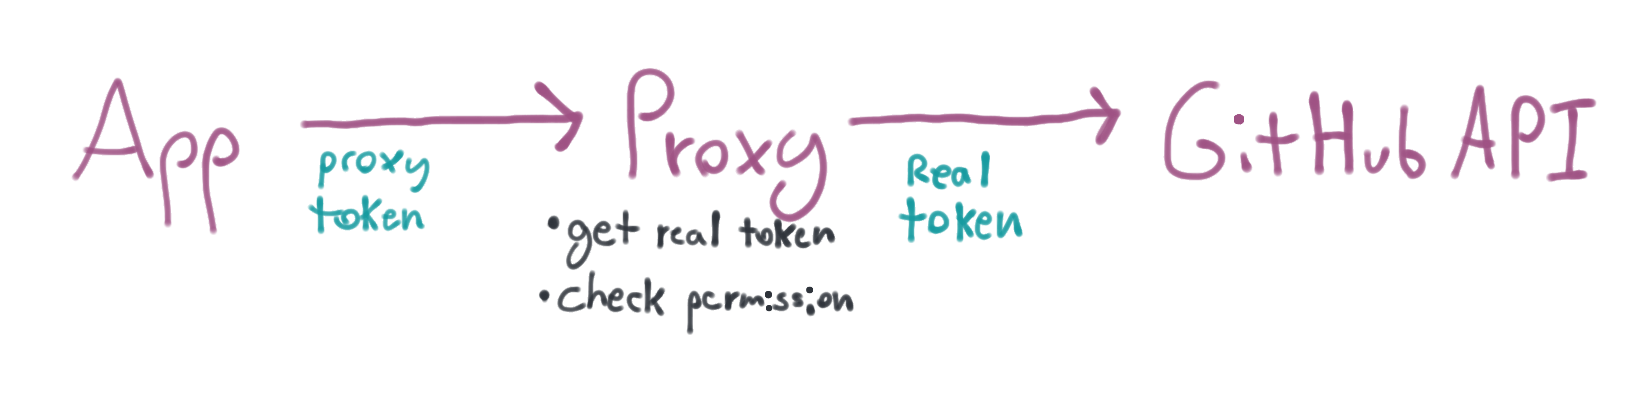 App
proxy
token
Proxy
• get real token
• check permission
Real
token
GitHub API